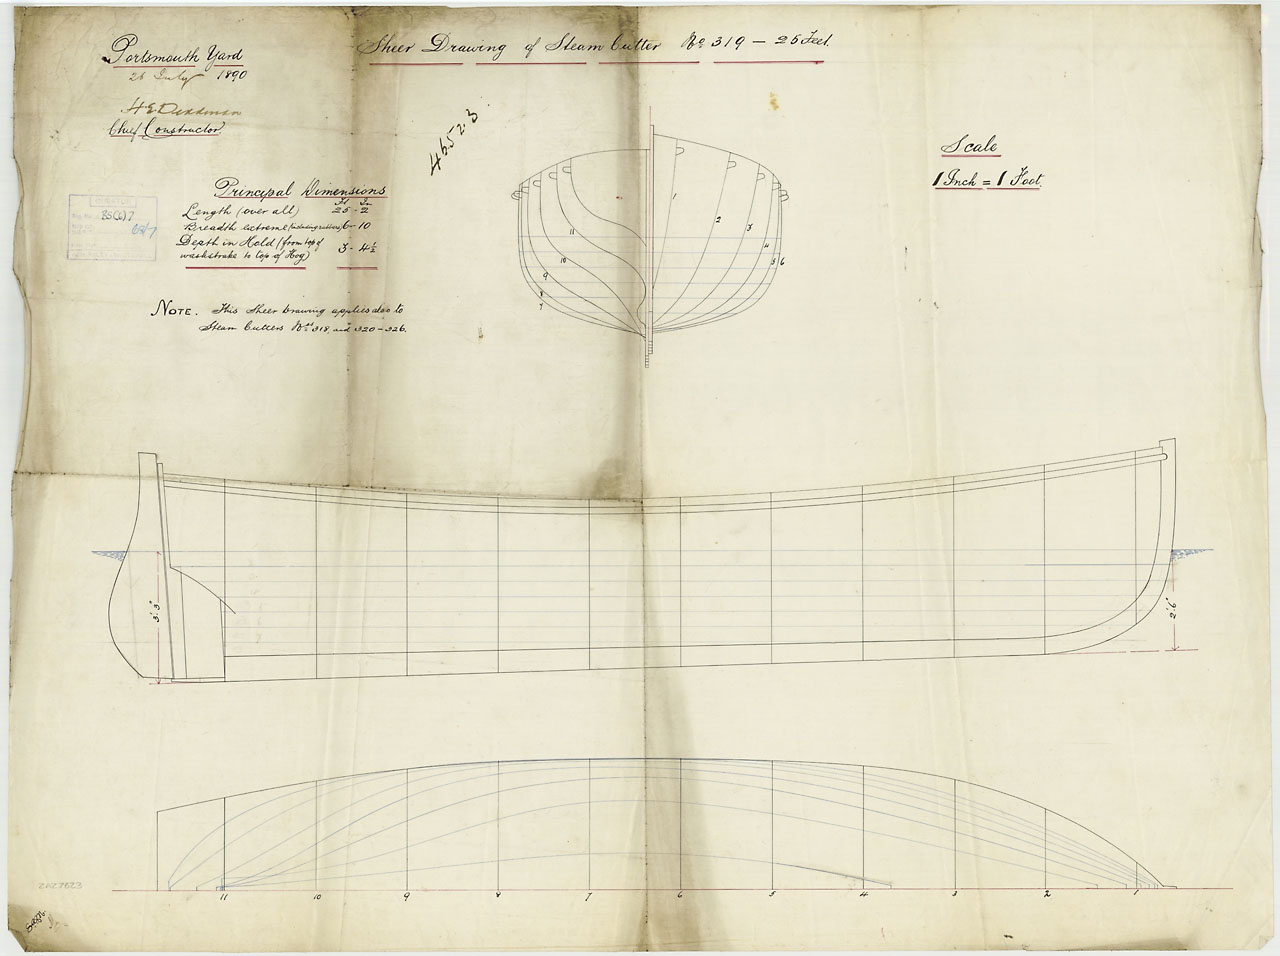 Sheer Drawing of Steam Cutter No 319 — 25 Feet.
Portsmouth Yard
July 1890
H.E. Deadman
Chief Constructor
46523
Scale
1 Inch = 1 Foot.
Principal Dimensions
Ft In
Length (over all) 25 - 2
Breadth extreme (including rubbers) 6 - 10
Depth in Hold (from top of
washstrake to top of Hog) 3 - 4½
NOTE. This Sheer Drawing applies also to
Steam Cutters Nos 318, and 320 - 326.
1
2
3
4
5 6
11
10
9
8
7
3'. 3"
2'. 6"
11 10 9 8 7 6 5 4 3 2 1